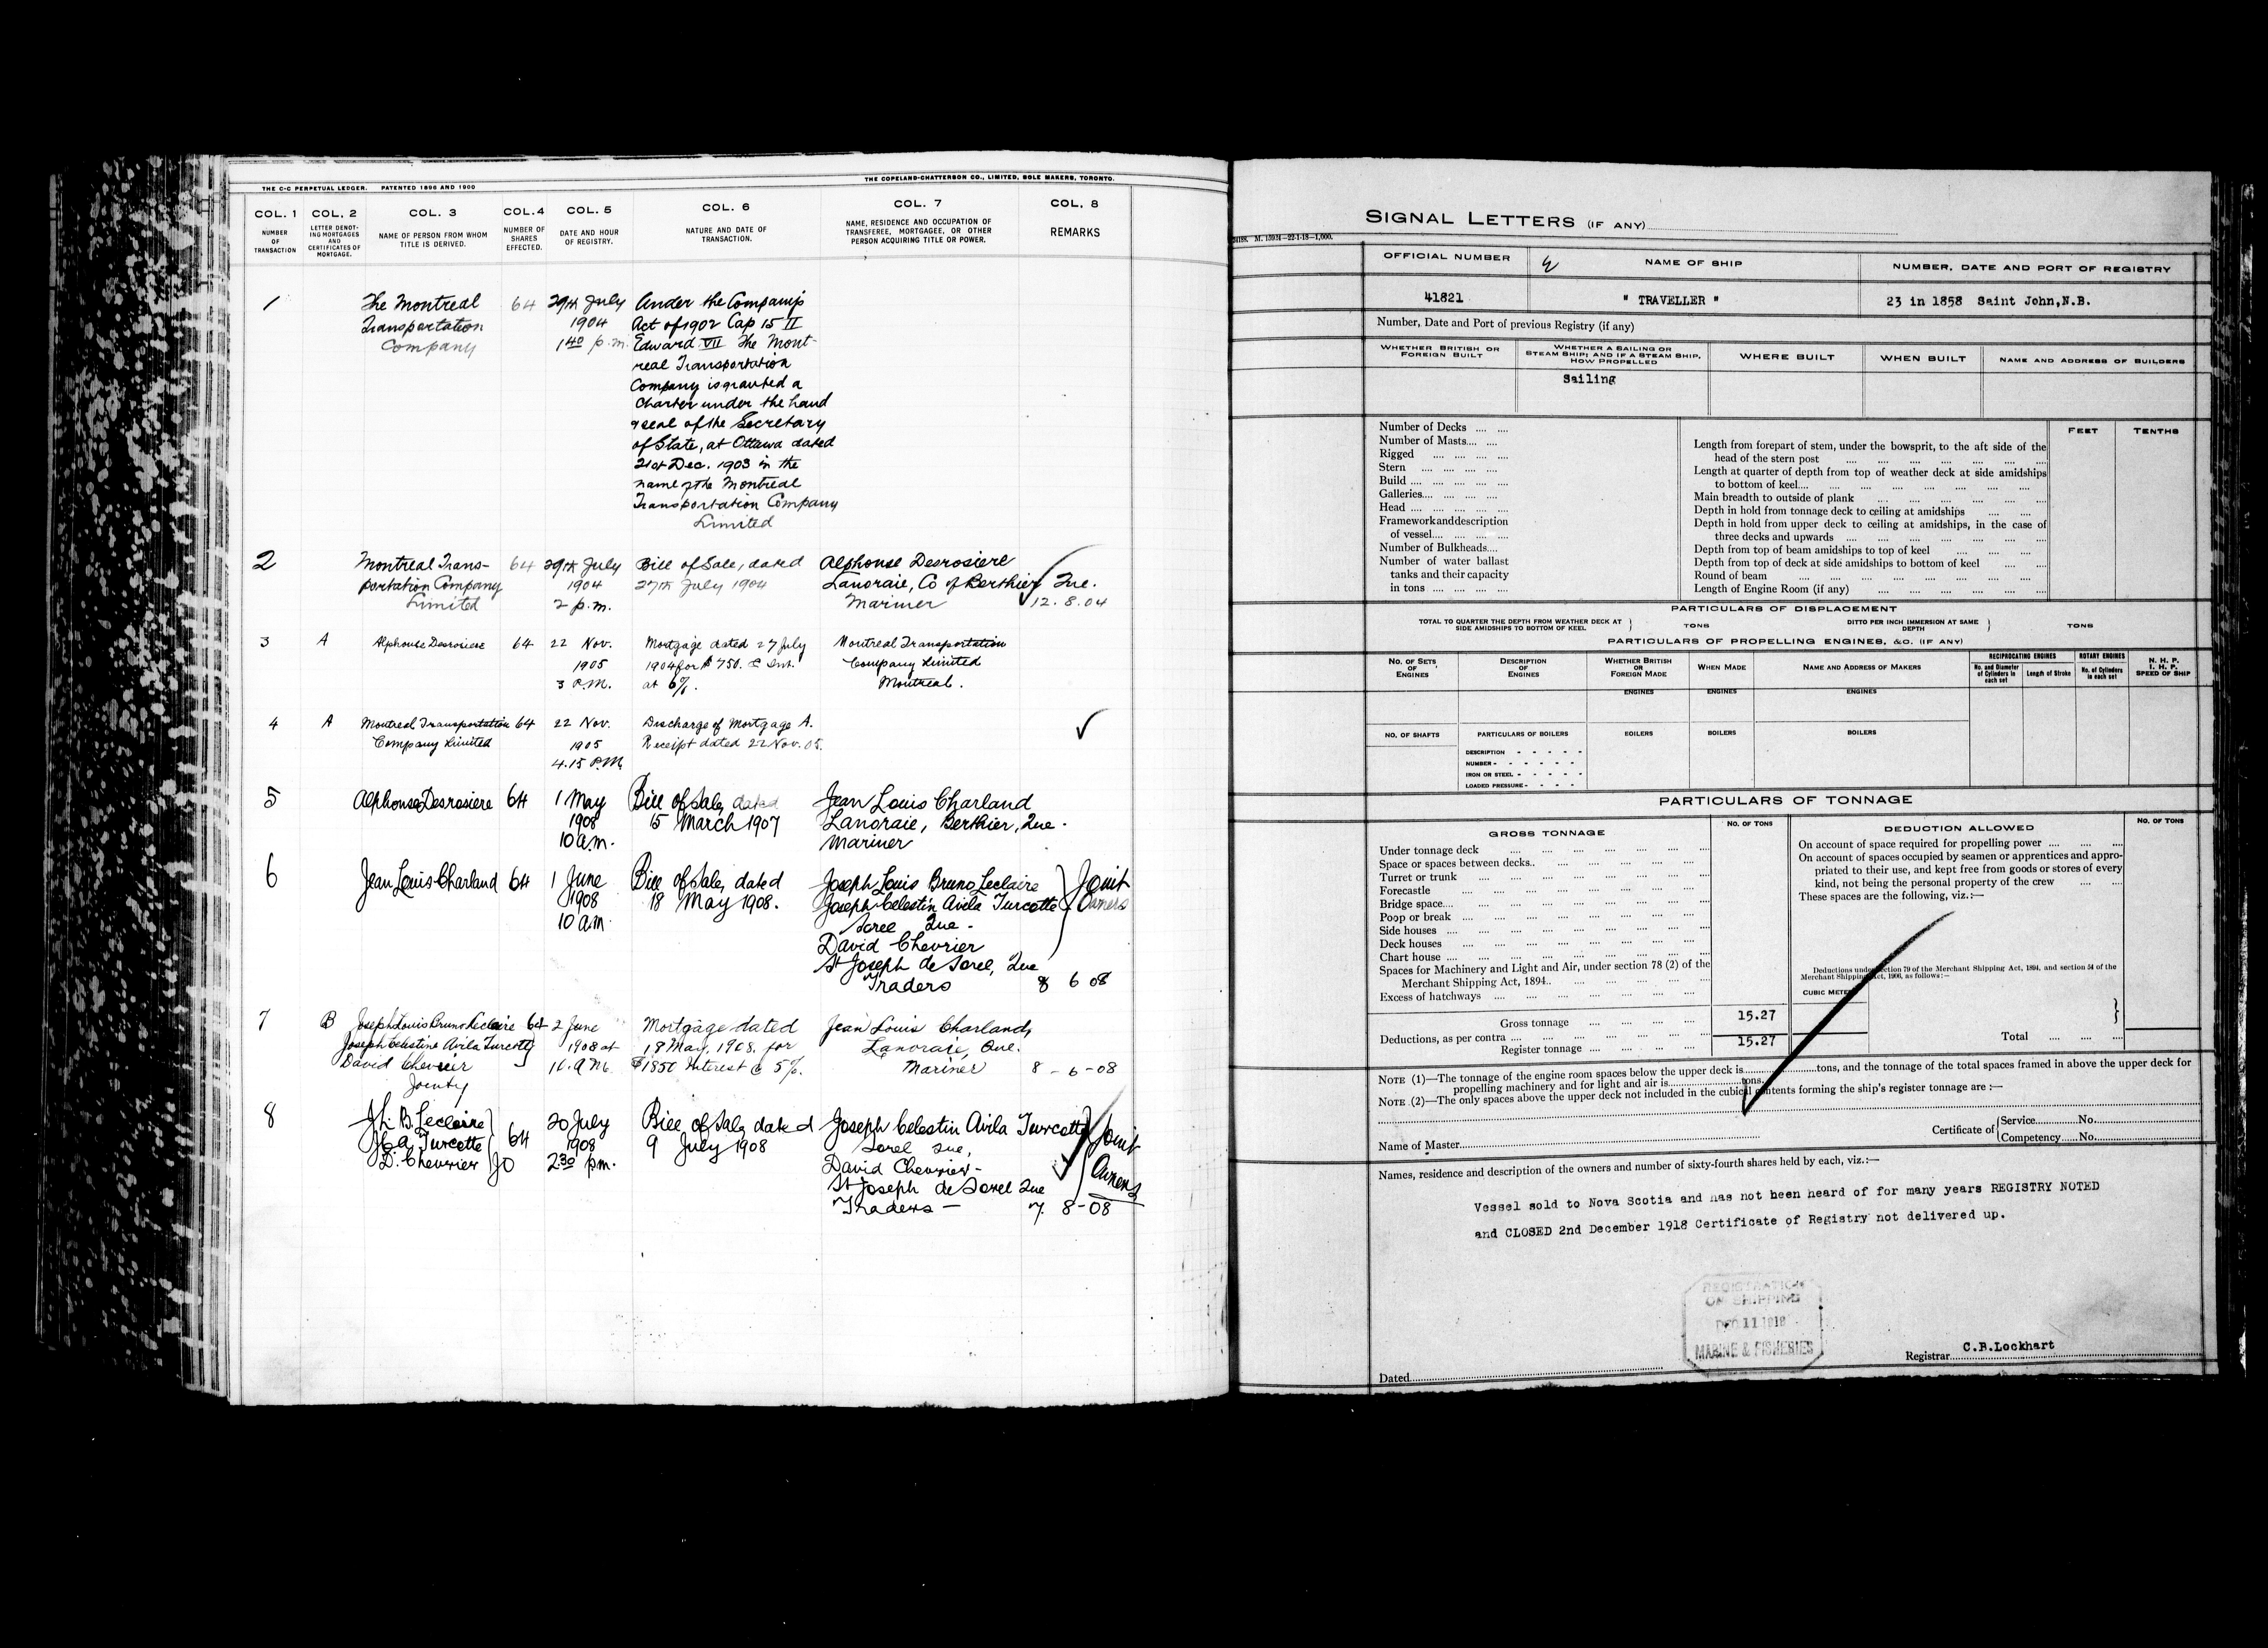 THE C-C PERPETUAL LEDGER. PATENTED 1896 AND 1900
THE COPELAND-CHATTERSON CO., LIMITED, SOLE MAKERS, TORONTO.
COL. 1 COL. 2 COL. 3 COL. 4 COL. 5 COL. 6 COL. 7 COL. 8
NUMBER OF TRANSACTION
LETTER DENOTING MORTGAGES AND CERTIFICATES OF MORTGAGE.
NAME OF PERSON FROM WHOM TITLE IS DERIVED.
NUMBER OF SHARES EFFECTED.
DATE AND HOUR OF REGISTRY.
NATURE AND DATE OF TRANSACTION.
NAME, RESIDENCE AND OCCUPATION OF TRANSFEREE, MORTGAGEE, OR OTHER PERSON ACQUIRING TITLE OR POWER.
REMARKS
1 The Montreal 64 29th July Under the Companys
Transportation 1904 Act of 1902 Cap 15 II
Company 1 40 p.m. Edward VII The Mont-
real Transportation
Company is granted a
Charter under the hand
& seal of the Secretary
of State, at Ottawa dated
21st Dec. 1903 in the
name of the Montreal
Transportation Company
Limited
2 Montreal Trans- 64 29th July Bill of Sale, dated Alphonse Desrosiere
portation Company 1904 27th July 1904 Lanoraie, Co of Berthier Que.
Limited 2 p.m. Mariner 12.8.04
3 A Alphonse Desrosiere 64 22 Nov. Mortgage dated 27 July Montreal Transportation
1905 1904 for $750. & Int. Company Limited
3 P.M. at 6%. Montreal.
4 A Montreal Transportation 64 22 Nov. Discharge of Mortgage A.
Company Limited 1905 Receipt dated 22 Nov. 05.
4.15 P.M.
5 Alphonse Desrosiere 64 1 May Bill of Sale, dated Jean Louis Charland
1908 15 March 1907 Lanoraie, Berthier, Que.
10 a.m. Mariner
6 Jean Louis Charland 64 1 June Bill of Sale, dated Joseph Louis Bruno Leclaire Joint
1908 18 May 1908. Joseph Celestin Avila Turcotte Owners
10 a.m. Sorel Que-
David Chevrier
St Joseph de Sorel, Que
Traders 8 6 08
7 B Joseph Louis Bruno Leclaire 64 2 June Mortgage dated Jean Louis Charland,
Joseph Celestine Avila Turcotte 1908 at 18 May, 1908. for Lanoraie, Que.
David Chevrier $1850 Interest @ 5%. Mariner 8-6-08
Jointy
8 J.L. B. Leclaire 20 July Bill of Sale, dated Joseph Celestin Avila Turcotte Joint
Turcotte 64 1908 9 July 1908 Sorel Que,
D. Chevrier JO 2 30 p.m. David Chevrier- Owners
St Joseph de Sorel Que
Traders- 7. 8-08
SIGNAL LETTERS (IF ANY)
M. 159M-22-1-18-1,000.
OFFICIAL NUMBER NAME OF SHIP NUMBER, DATE AND PORT OF REGISTRY
41821 " TRAVELLER " 23 in 1858 Saint John,N.B.
Number, Date and Port of previous Registry (if any)
WHETHER BRITISH OR FOREIGN BUILT
WHETHER A SAILING OR STEAM SHIP; AND IF A STEAM SHIP, HOW PROPELLED
WHERE BUILT WHEN BUILT NAME AND ADDRESS OF BUILDERS
Sailing
Number of Decks
Number of Masts
Rigged
Stern
Build
Galleries
Head
Framework and description
of vessel
Number of Bulkheads
Number of water ballast
tanks and their capacity
in tons
FEET TENTHS
Length from forepart of stem, under the bowsprit, to the aft side of the
head of the stern post
Length at quarter of depth from top of weather deck at side amidships
to bottom of keel
Main breadth to outside of plank
Depth in hold from tonnage deck to ceiling at amidships
Depth in hold from upper deck to ceiling at amidships, in the case of
three decks and upwards
Depth from top of beam amidships to top of keel
Depth from top of deck at side amidships to bottom of keel
Round of beam
Length of Engine Room (if any)
PARTICULARS OF DISPLACEMENT
TOTAL TO QUARTER THE DEPTH FROM WEATHER DECK AT SIDE AMIDSHIPS TO BOTTOM OF KEEL } TONS
DITTO PER INCH IMMERSION AT SAME DEPTH } TONS
PARTICULARS OF PROPELLING ENGINES, &C. (IF ANY)
NO. OF SETS OF ENGINES
DESCRIPTION OF ENGINES
WHETHER BRITISH OR FOREIGN MADE
WHEN MADE
NAME AND ADDRESS OF MAKERS
RECIPROCATING ENGINES
No. and Diameter of Cylinders in each set
Length of Stroke
ROTARY ENGINES
No. of Cylinders in each set
N. H. P. I. H. P. SPEED OF SHIP
ENGINES ENGINES ENGINES
NO. OF SHAFTS PARTICULARS OF BOILERS BOILERS BOILERS BOILERS
DESCRIPTION
NUMBER
IRON OR STEEL
LOADED PRESSURE
PARTICULARS OF TONNAGE
GROSS TONNAGE NO. OF TONS DEDUCTION ALLOWED NO. OF TONS
Under tonnage deck
Space or spaces between decks
Turret or trunk
Forecastle
Bridge space
Poop or break
Side houses
Deck houses
Chart house
Spaces for Machinery and Light and Air, under section 78 (2) of the
Merchant Shipping Act, 1894
Excess of hatchways
Gross tonnage 15.27
Deductions, as per contra
Register tonnage 15.27
On account of space required for propelling power
On account of spaces occupied by seamen or apprentices and appro-
priated to their use, and kept free from goods or stores of every
kind, not being the personal property of the crew
These spaces are the following, viz.:—
Deductions under section 79 of the Merchant Shipping Act, 1894, and section 54 of the
Merchant Shipping Act, 1906, as follows:—
CUBIC METERS
Total
NOTE (1)—The tonnage of the engine room spaces below the upper deck is tons, and the tonnage of the total spaces framed in above the upper deck for
propelling machinery and for light and air is tons.
NOTE (2)—The only spaces above the upper deck not included in the cubical contents forming the ship's register tonnage are :—
Name of Master
Certificate of { Service No.
Competency No.
Names, residence and description of the owners and number of sixty-fourth shares held by each, viz.:—
Vessel sold to Nova Scotia and has not been heard of for many years REGISTRY NOTED
and CLOSED 2nd December 1918 Certificate of Registry not delivered up.
REGISTRATION
OF SHIPPING
DEC 11 1918
MARINE & FISHERIES
Registrar C.B.Lockhart
Dated